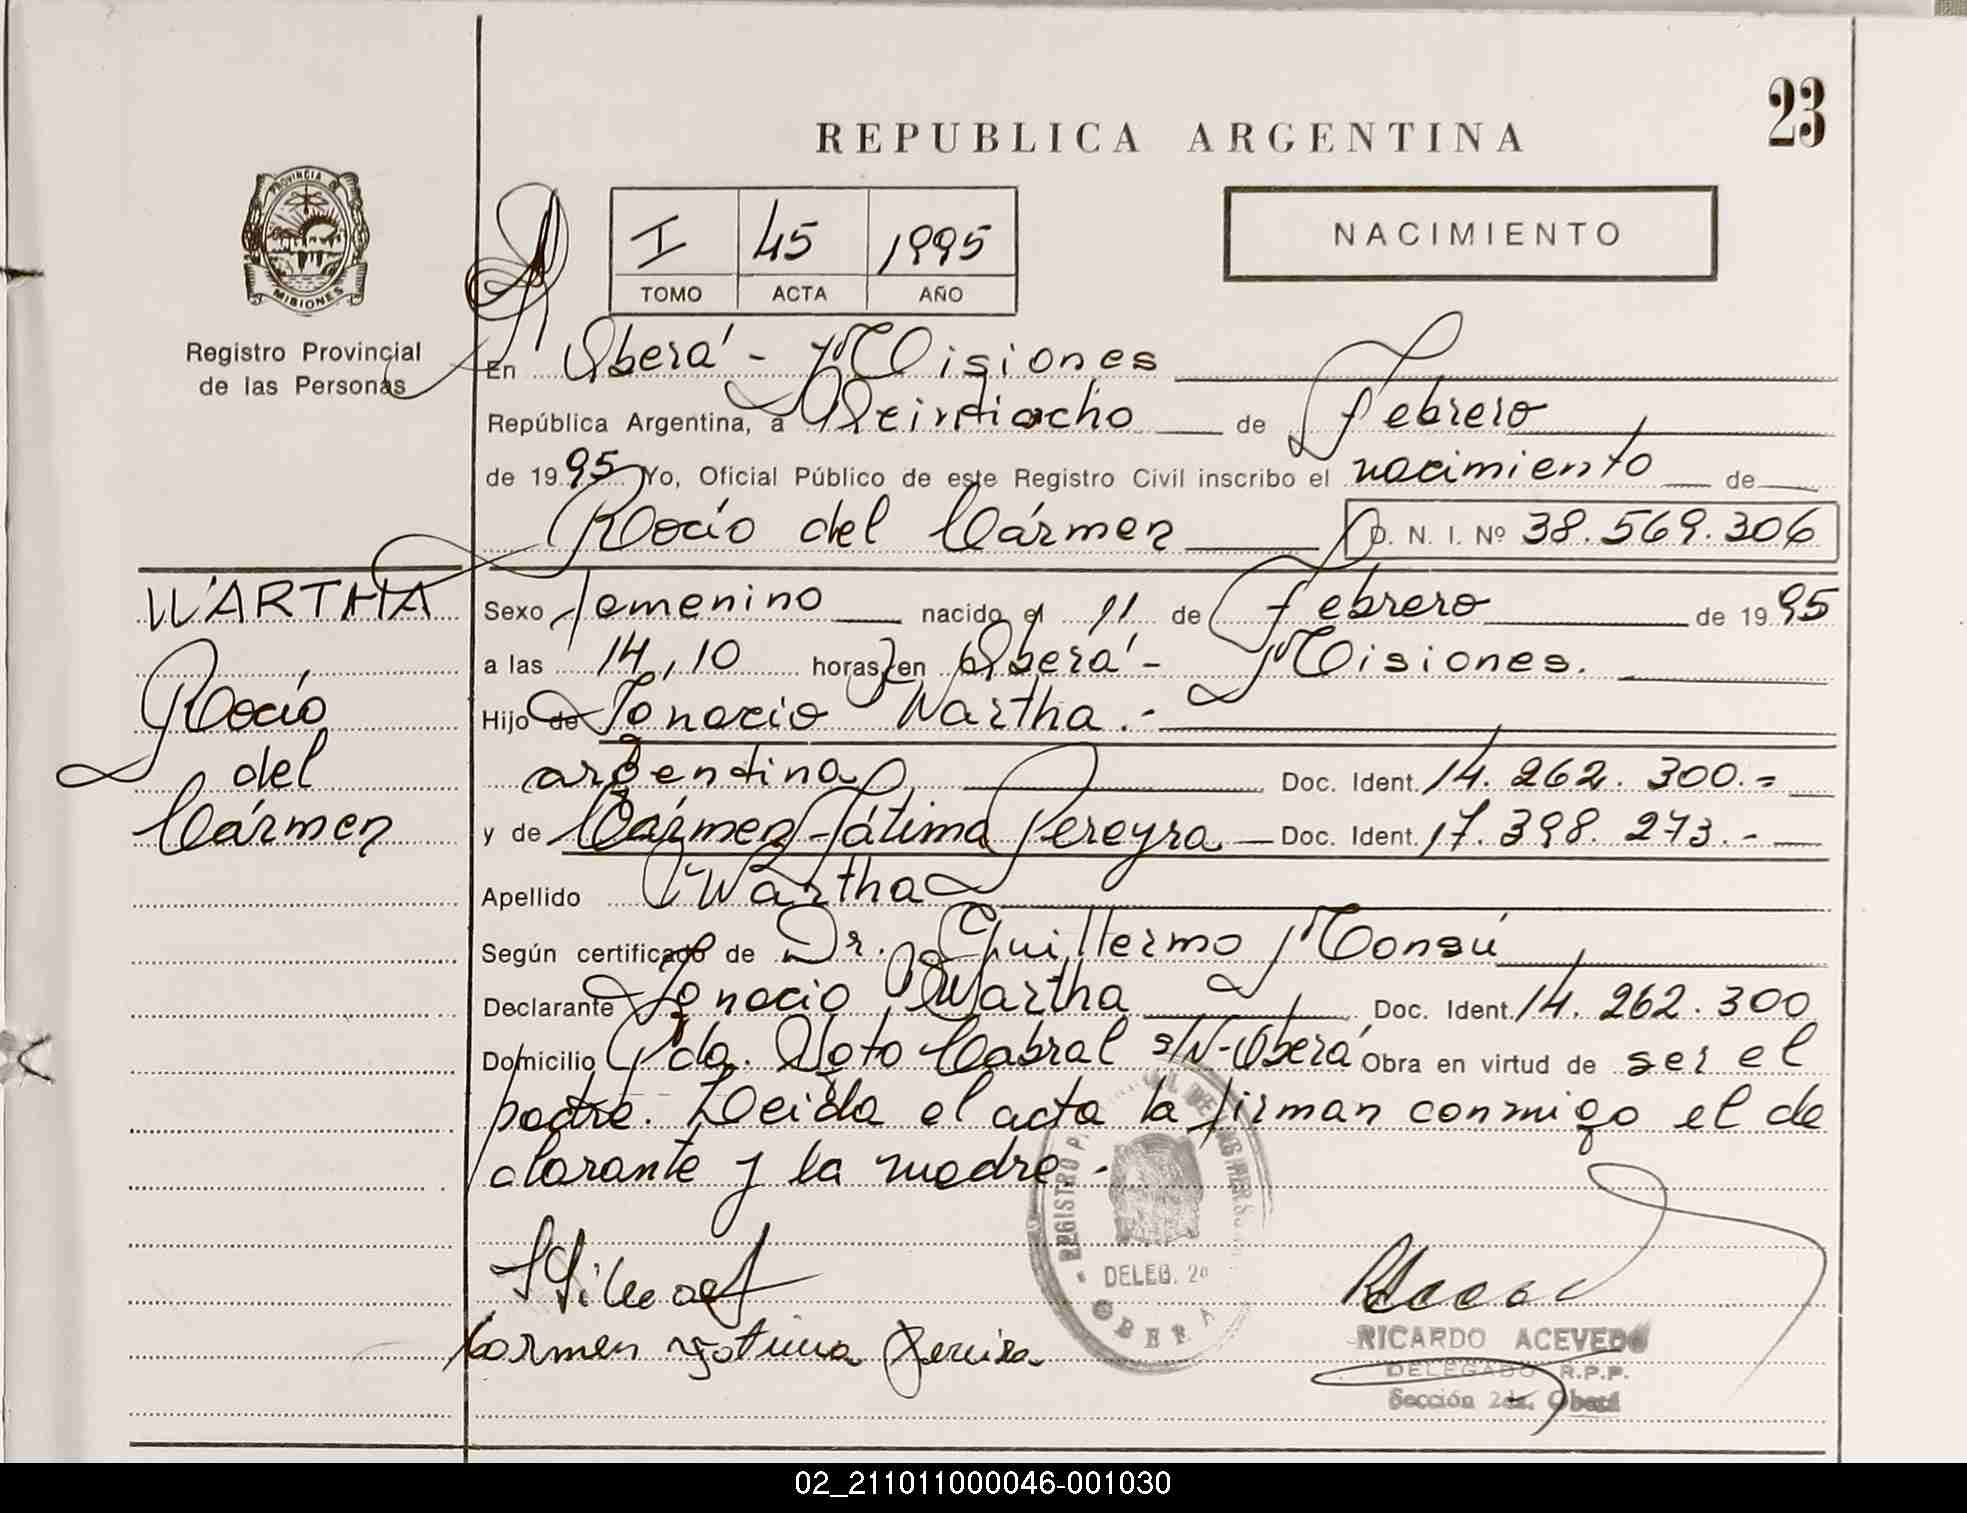 23
REPUBLICA ARGENTINA
PROVINCIA DE
MISIONES
Registro Provincial
de las Personas
I 45 1995
TOMO ACTA AÑO
NACIMIENTO
En Oberá - Misiones
República Argentina, a Veintiocho de Febrero
de 1995 Yo, Oficial Público de este Registro Civil inscribo el nacimiento de
Rocío del Cármen D. N. I. Nº 38.569.306
WARTHA
Rocío
del
Cármen
Sexo femenino nacido el 11 de Febrero de 1995
a las 14,10 horas, en Oberá - Misiones.
Hijo de Ignacio Wartha.-
argentina Doc. Ident. 14.262.300.=
y de Cármen Fátima Pereyra Doc. Ident. 17.398.273.-
Apellido Wartha
Según certificado de Dr. Guillermo Monsú
Declarante Ignacio Wartha Doc. Ident. 14.262.300
Domicilio Pda. Sgto Cabral s/N-Oberá Obra en virtud de ser el
padre. Leída el acta la firman conmigo el de
clarante y la madre.-
REGISTRO
DELEG. 2
OBERA
Carmen Fatima Pereira
RICARDO ACEVEDO
DELEGADO R.P.P.
Sección 2da. Oberá
02_211011000046-001030